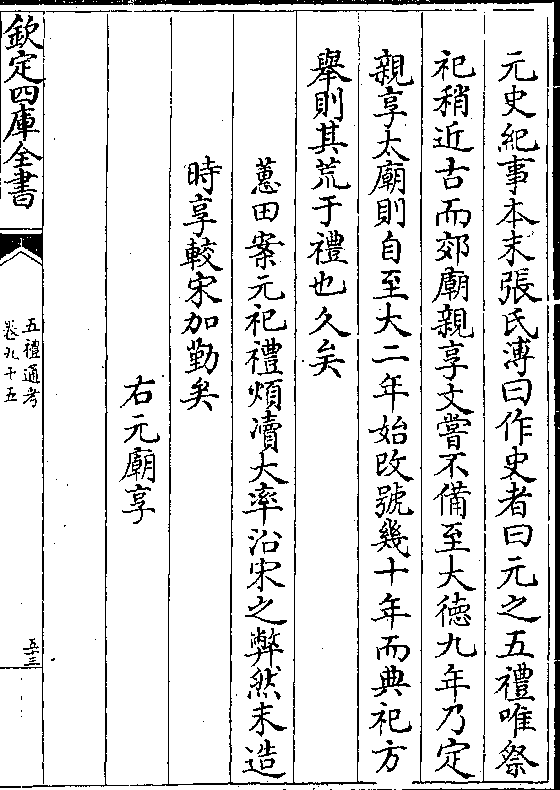 元史紀事本末張氏溥曰作史者曰元之五禮唯祭
祀稍近古而郊廟親享文嘗不備至大德九年乃定
親享太廟則自至大二年始改號幾十年而典祀方
舉則其荒于禮也久矣
蕙田案元祀禮煩凟大率沿宋之弊然末造
時享較宋加勤矣
右元廟享
欽定四庫全書
五禮通考
卷九十五
五十三